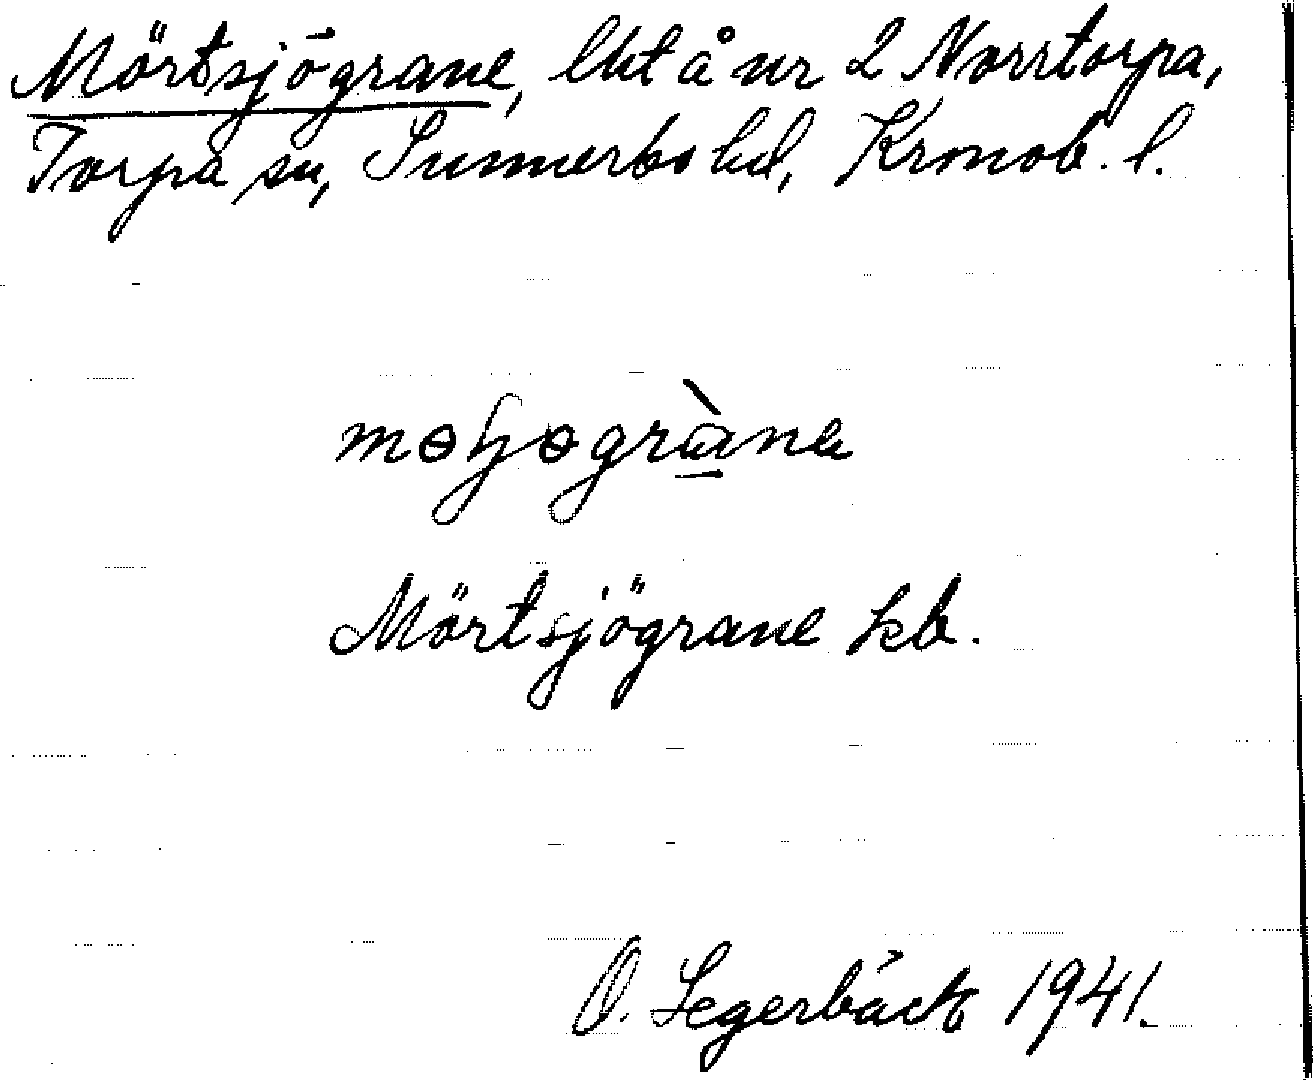 Mörtsjögrane, lht å nr 2 Norrtorpa,
Torpa sn, Sunnerbo hd, Kronob. l.
Mörtsjögrane kb.
O. Segerbäck 1941.